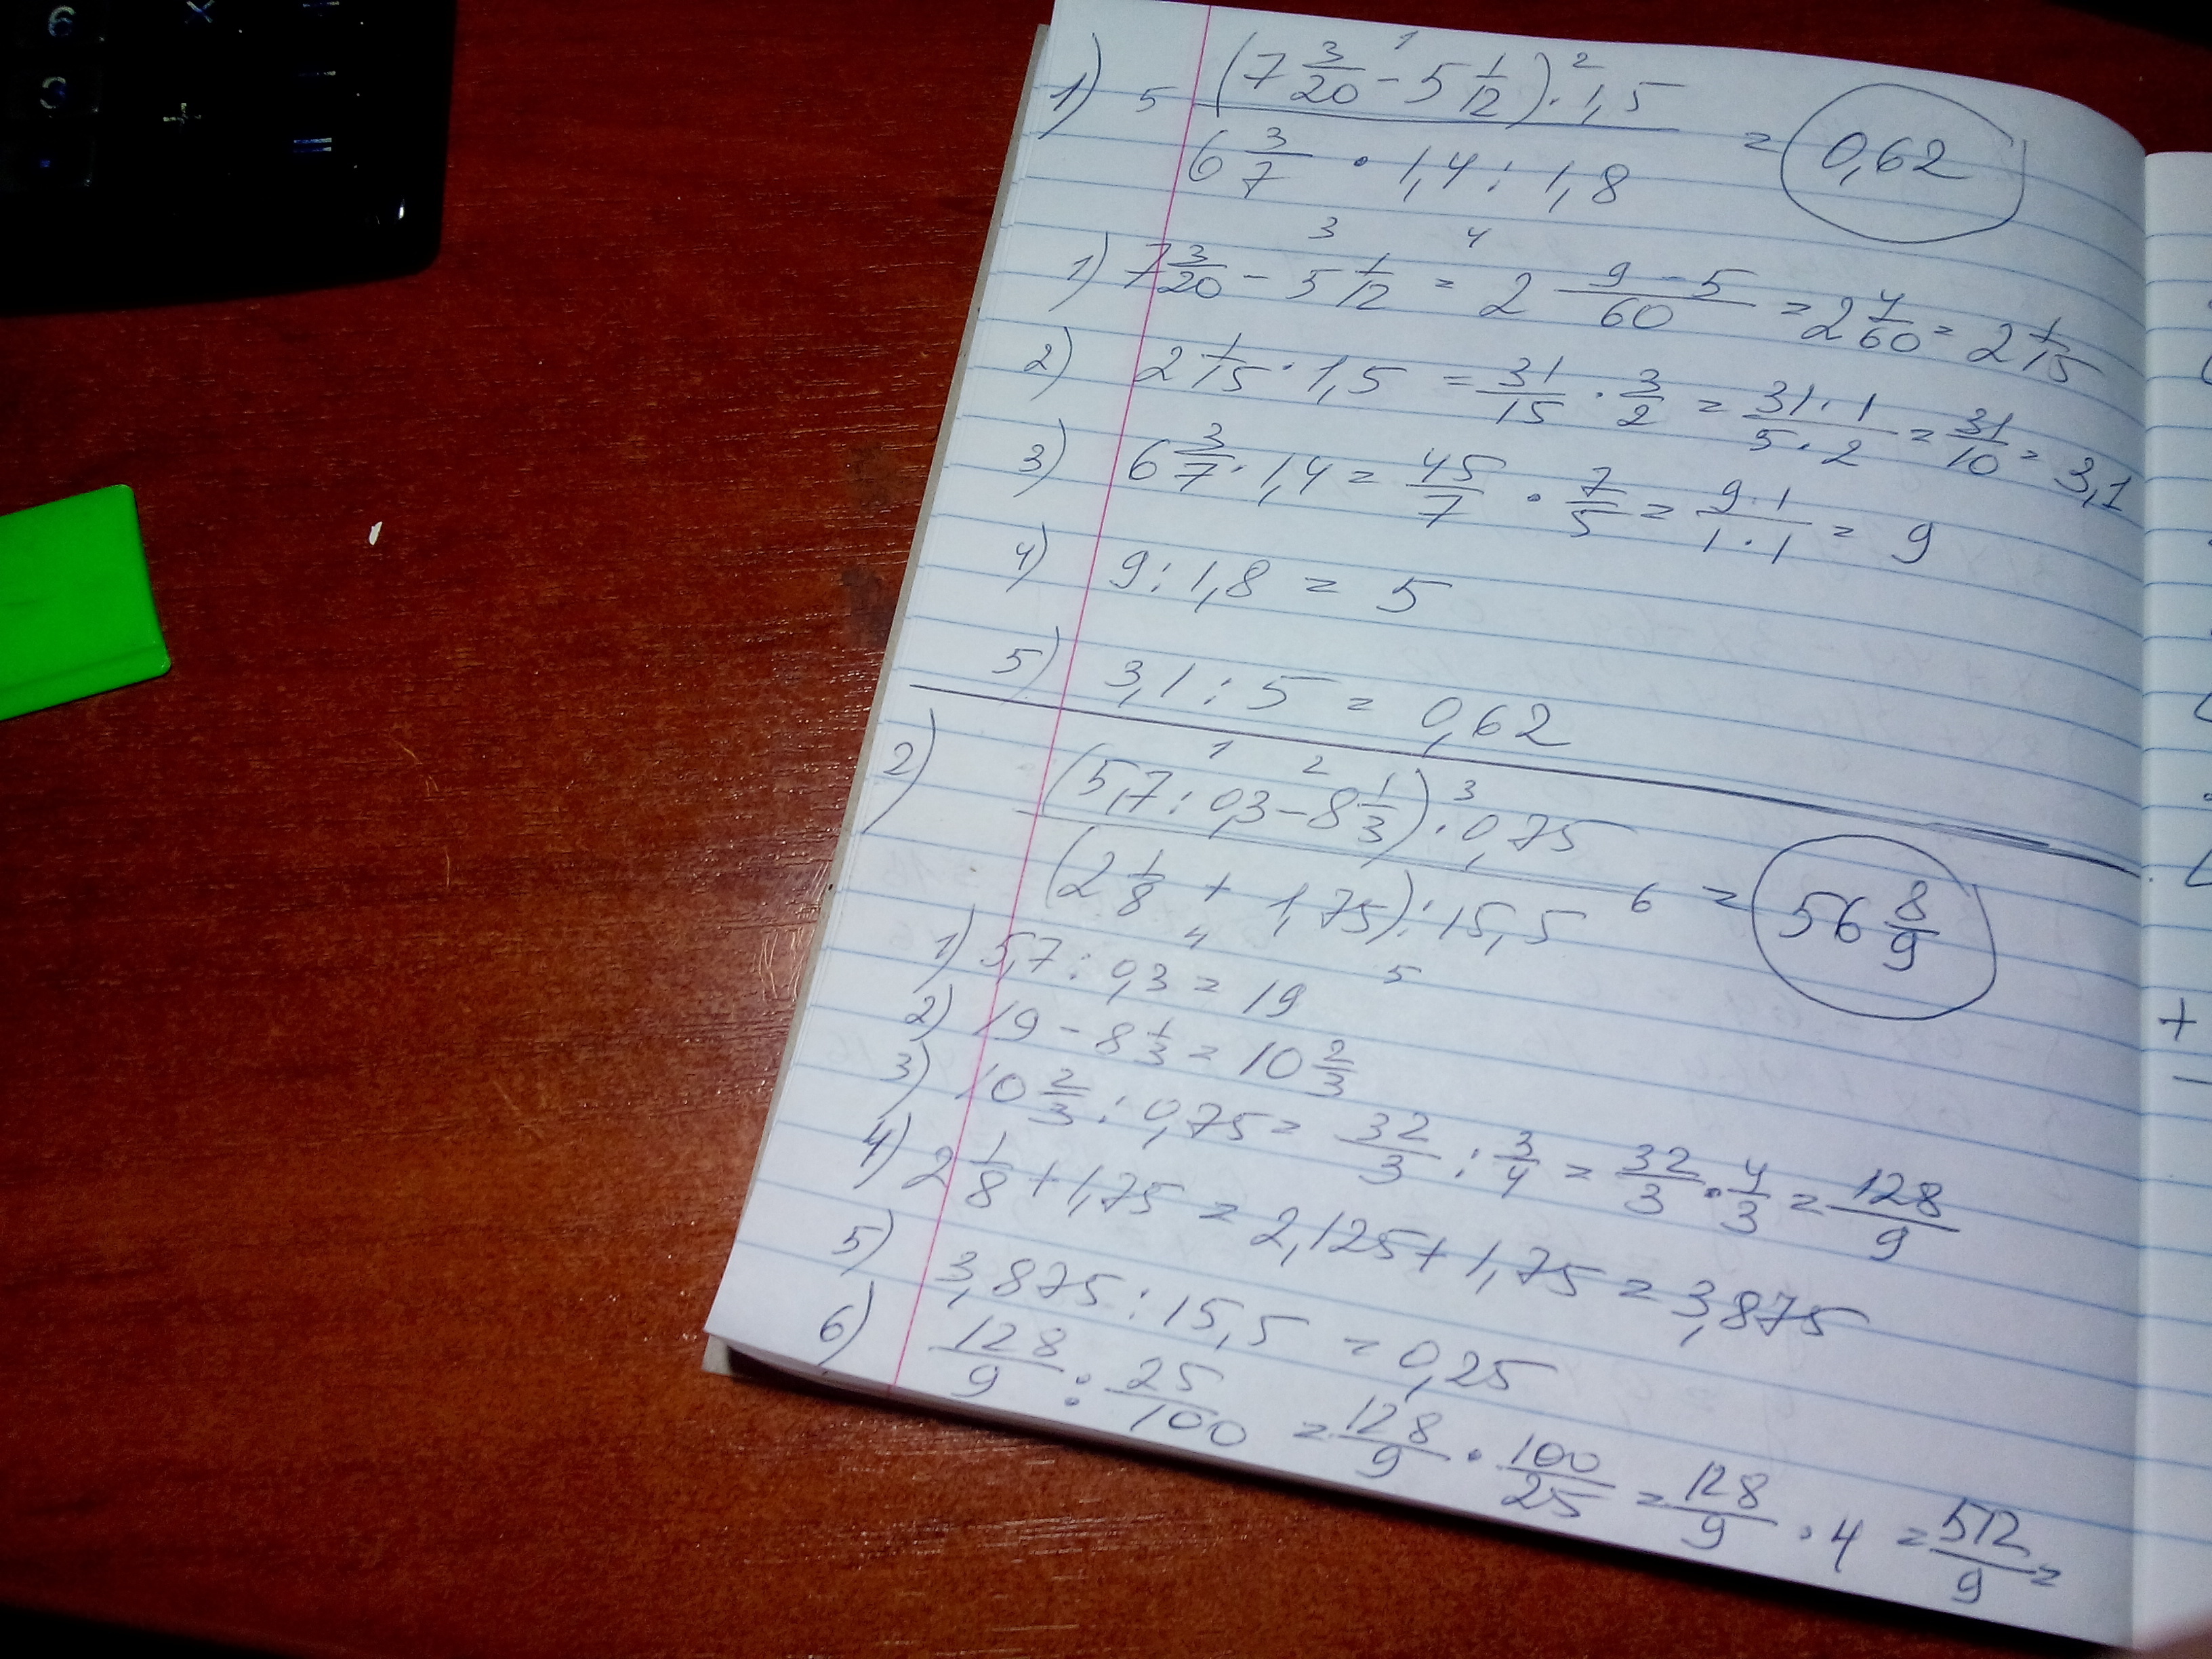 6 ×
3 + =
.
1) 5 (7 3/20 - 5 1/12) · 1,5 / 6 3/7 · 1,4 : 1,8 = 0,62
1 2
3 4
1) 7 3/20 - 5 1/12 = 2 (9-5)/60 = 2 4/60 = 2 1/15
2) 2 1/15 · 1,5 = 31/15 · 3/2 = (31·1)/(5·2) = 31/10 = 3,1
3) 6 3/7 · 1,4 = 45/7 · 7/5 = (9·1)/(1·1) = 9
4) 9 : 1,8 = 5
5) 3,1 : 5 = 0,62
1 2 3
2) (5,7 : 0,3 - 8 1/3) : 0,75 / (2 1/8 + 1,75) : 15,5 6 = 56 8/9
4 5
1) 5,7 : 0,3 = 19
2) 19 - 8 1/3 = 10 2/3
3) 10 2/3 : 0,75 = 32/3 : 3/4 = 32/3 · 4/3 = 128/9
4) 2 1/8 + 1,75 = 2,125 + 1,75 = 3,875
5) 3,875 : 15,5 = 0,25
6) 128/9 : 25/100 = 128/9 · 100/25 = 128/9 · 4 = 512/9 =
+